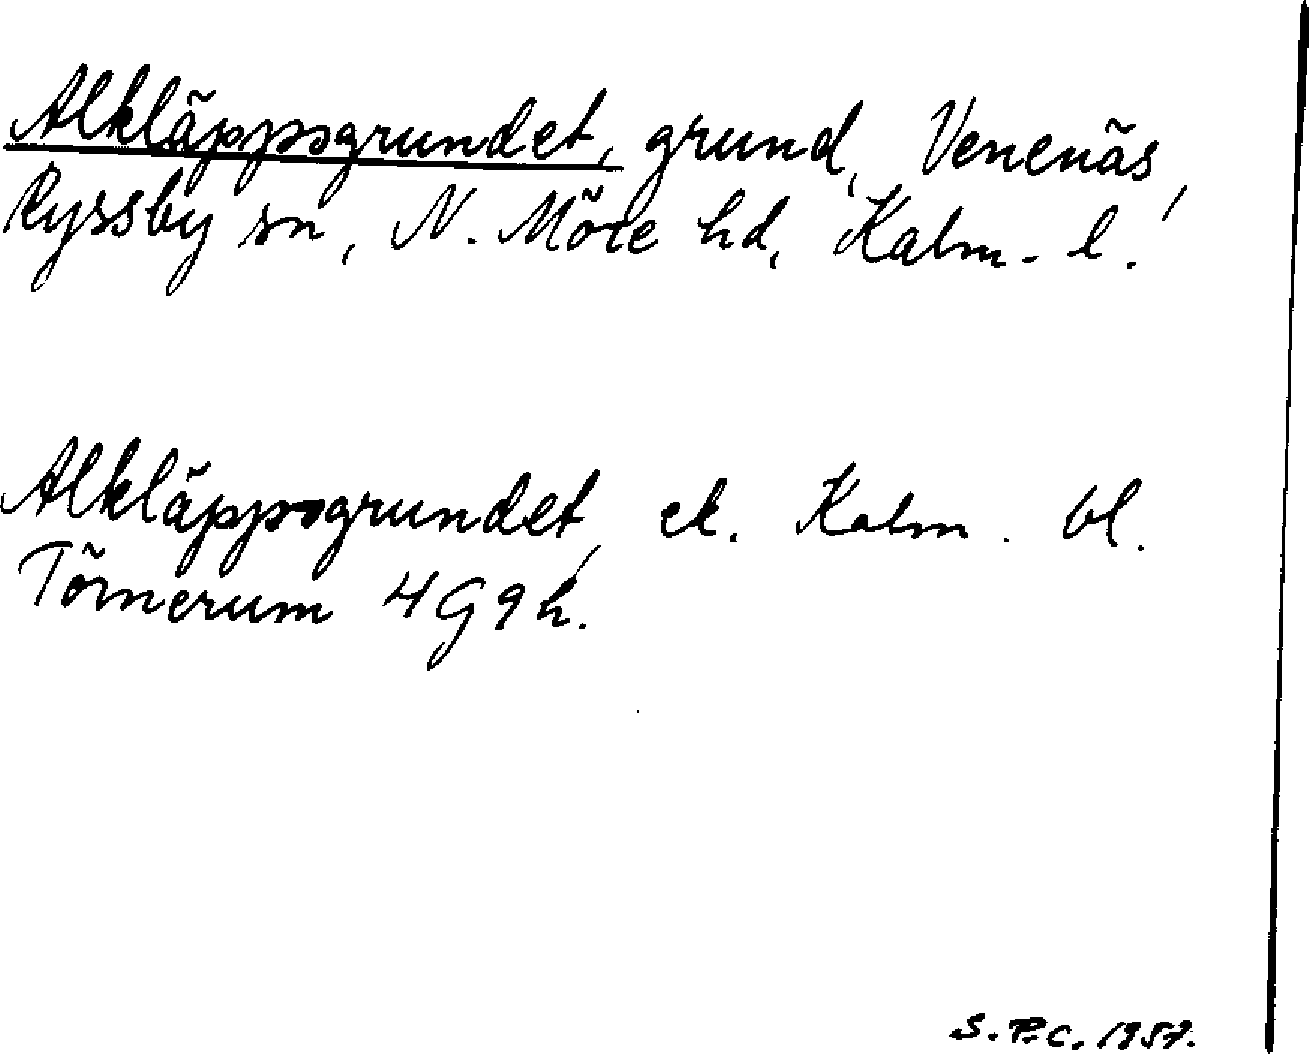 Alkläppsgrundet, grund, Venenäs,
Ryssby sn, N. Möre hd, Kalm. l.
Alkläppsgrundet, ek. Kalm. bl.
Törnerum 4G9h.
S.P.C. 1957.